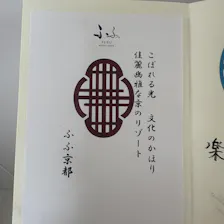 ふふ
こぼれる光 文化のかほり
佳麗幽雅な京のリゾート
ふふ京都
楽